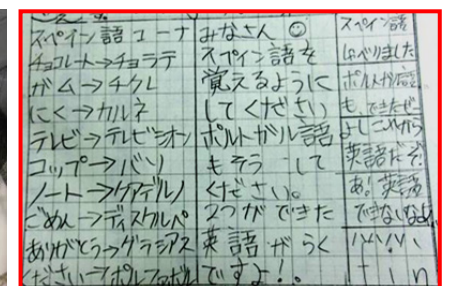 スペイン語コーナー
チョコレート→チョラテ
ガム→チクレ
にく→カルネ
テレビ→テレビシオン
コップ→バソ
ノート→クアデルノ
ごめん→ディスクルペ
ありがとう→グラシアス
ください→ポルファボル
みなさん☺
スペイン語を
覚えるように
してください
ポルトガル語
もそうして
ください。
2つができた
英語がらく
ですよ!。
スペイン語
しゃべりました
ポルトガル語
も、できたぜ
よしこれから
英語だぞ!
あ!英語
できないなよ